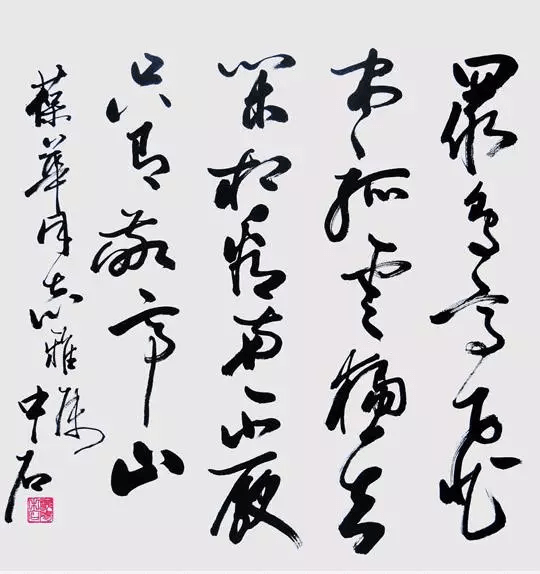 眾鳥高飛
盡孤雲獨去
閑相看兩不厭
只有敬亭山
葆華同志雅屬
中石